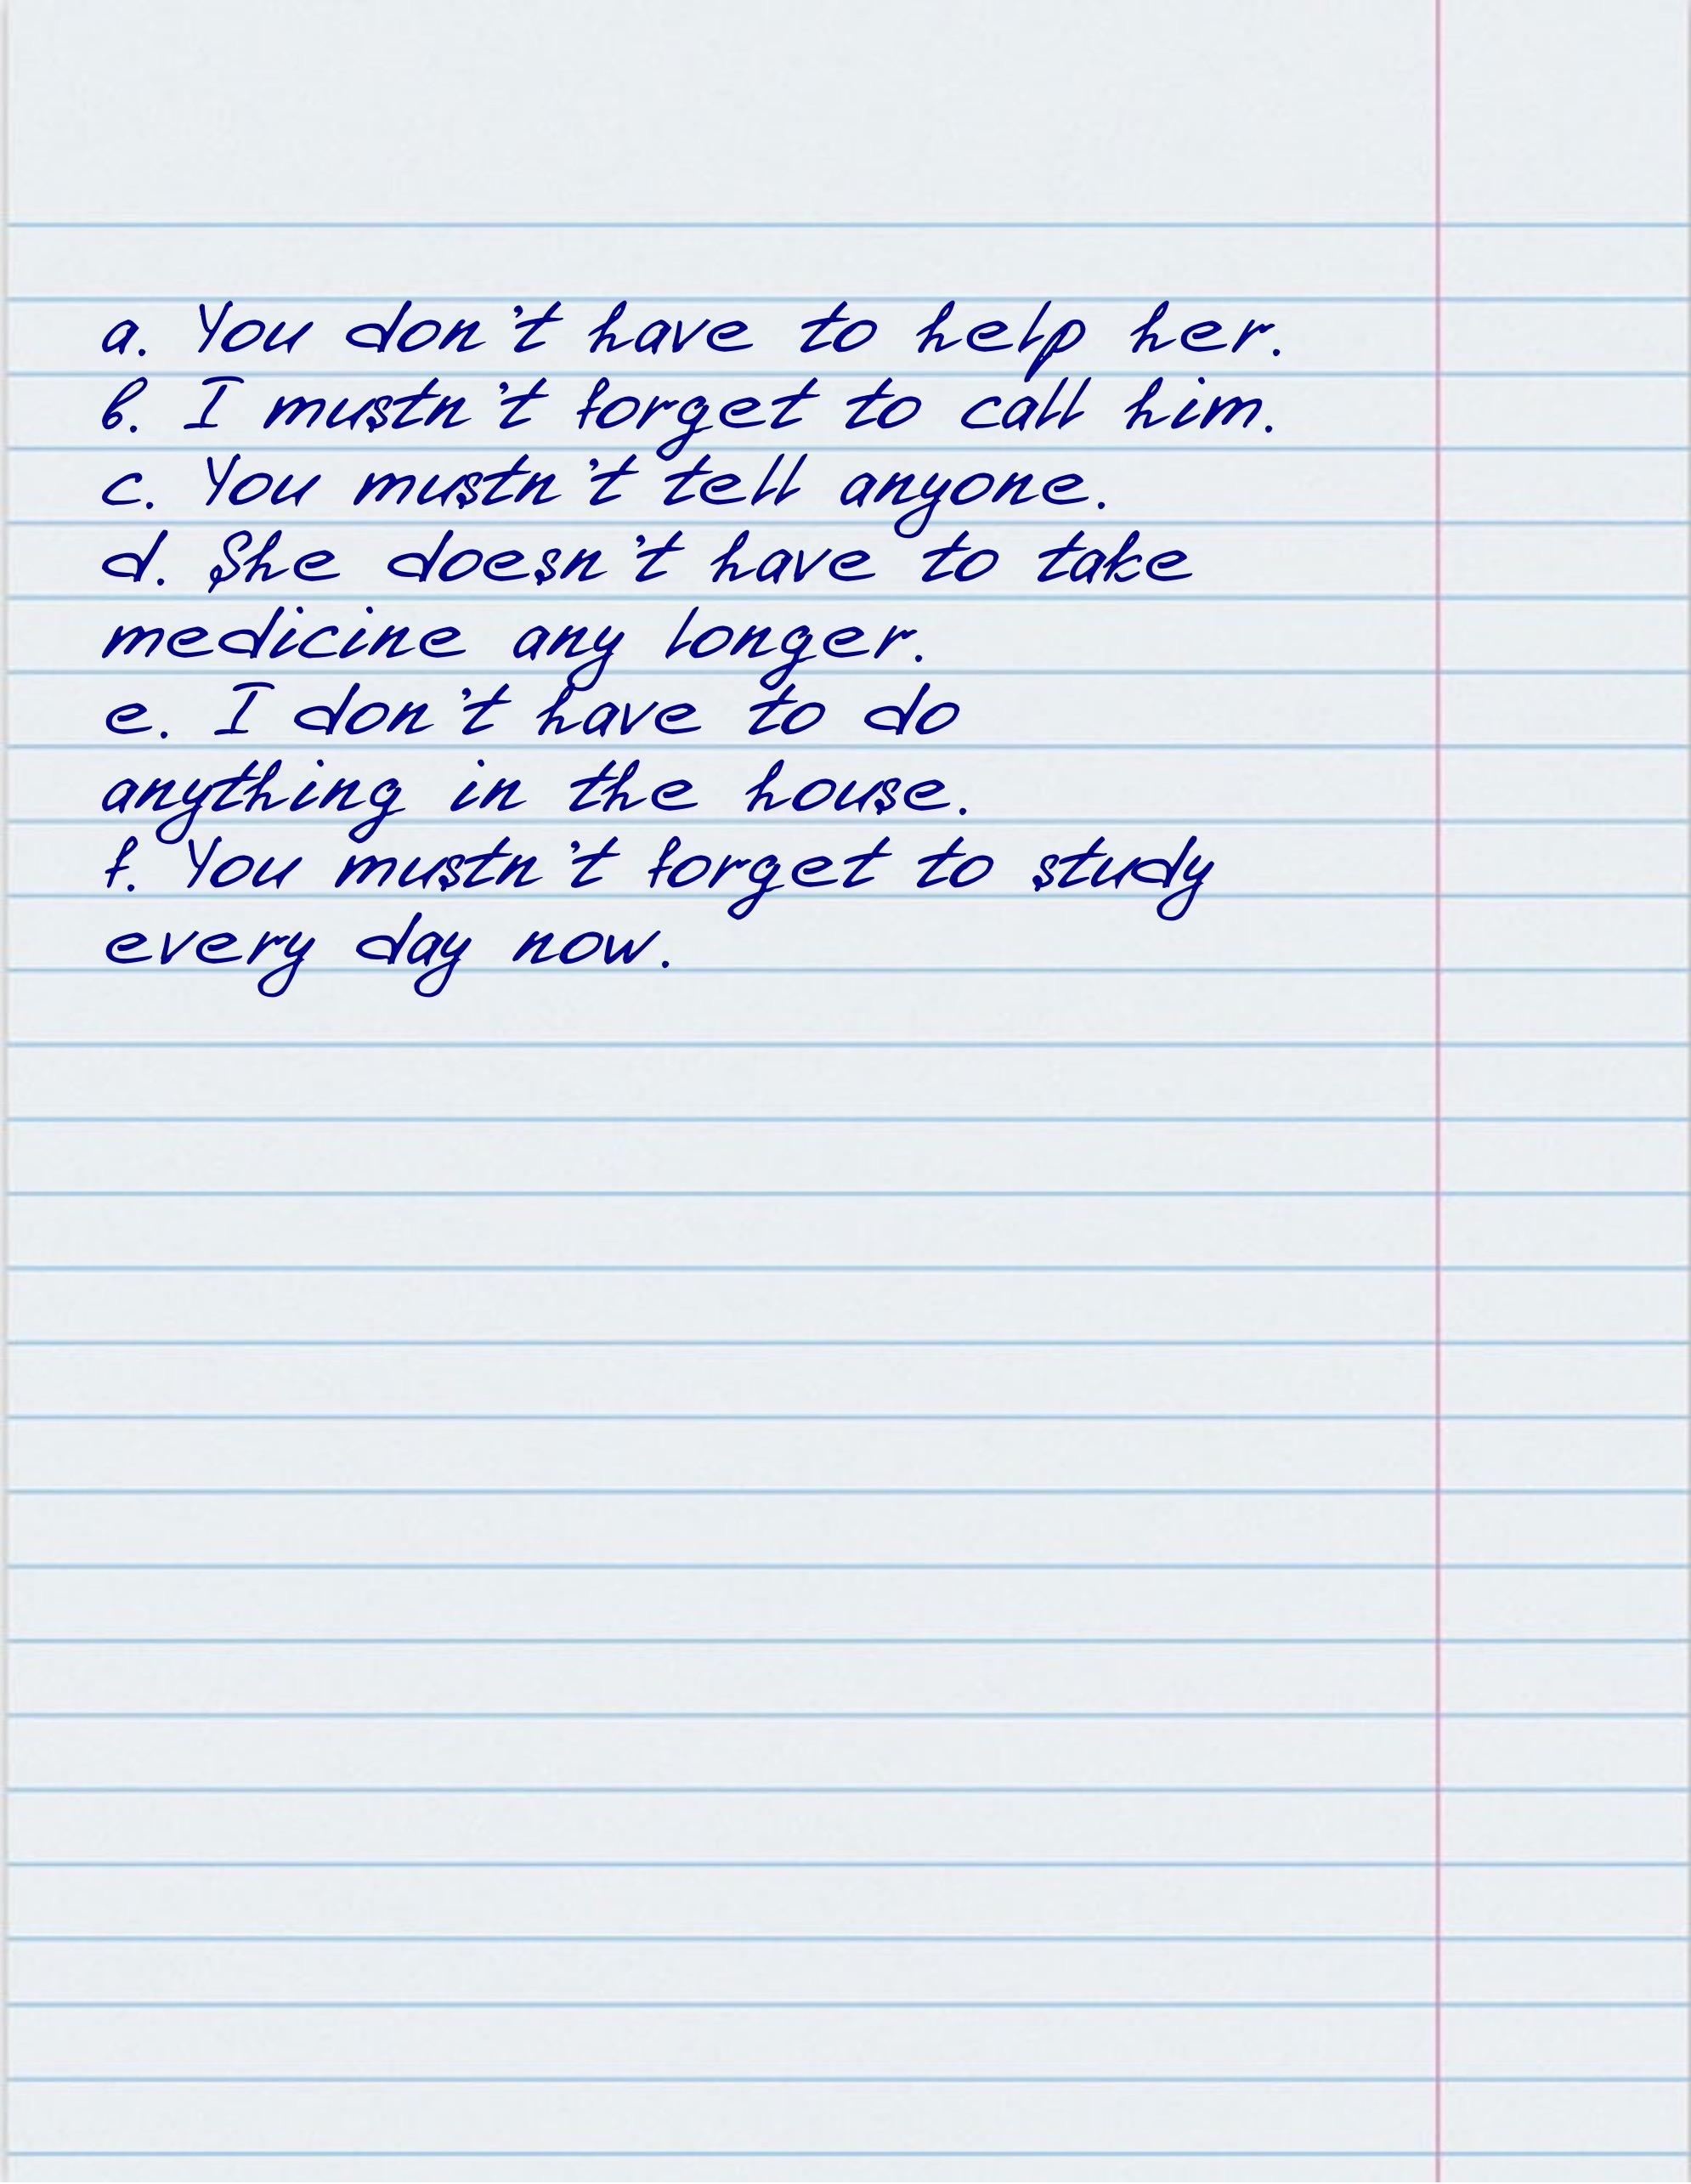 a. You don't have to help her.
b. I mustn't forget to call him.
c. You mustn't tell anyone.
d. She doesn't have to take
medicine any longer.
e. I don't have to do
anything in the house.
f. You mustn't forget to study
every day now.